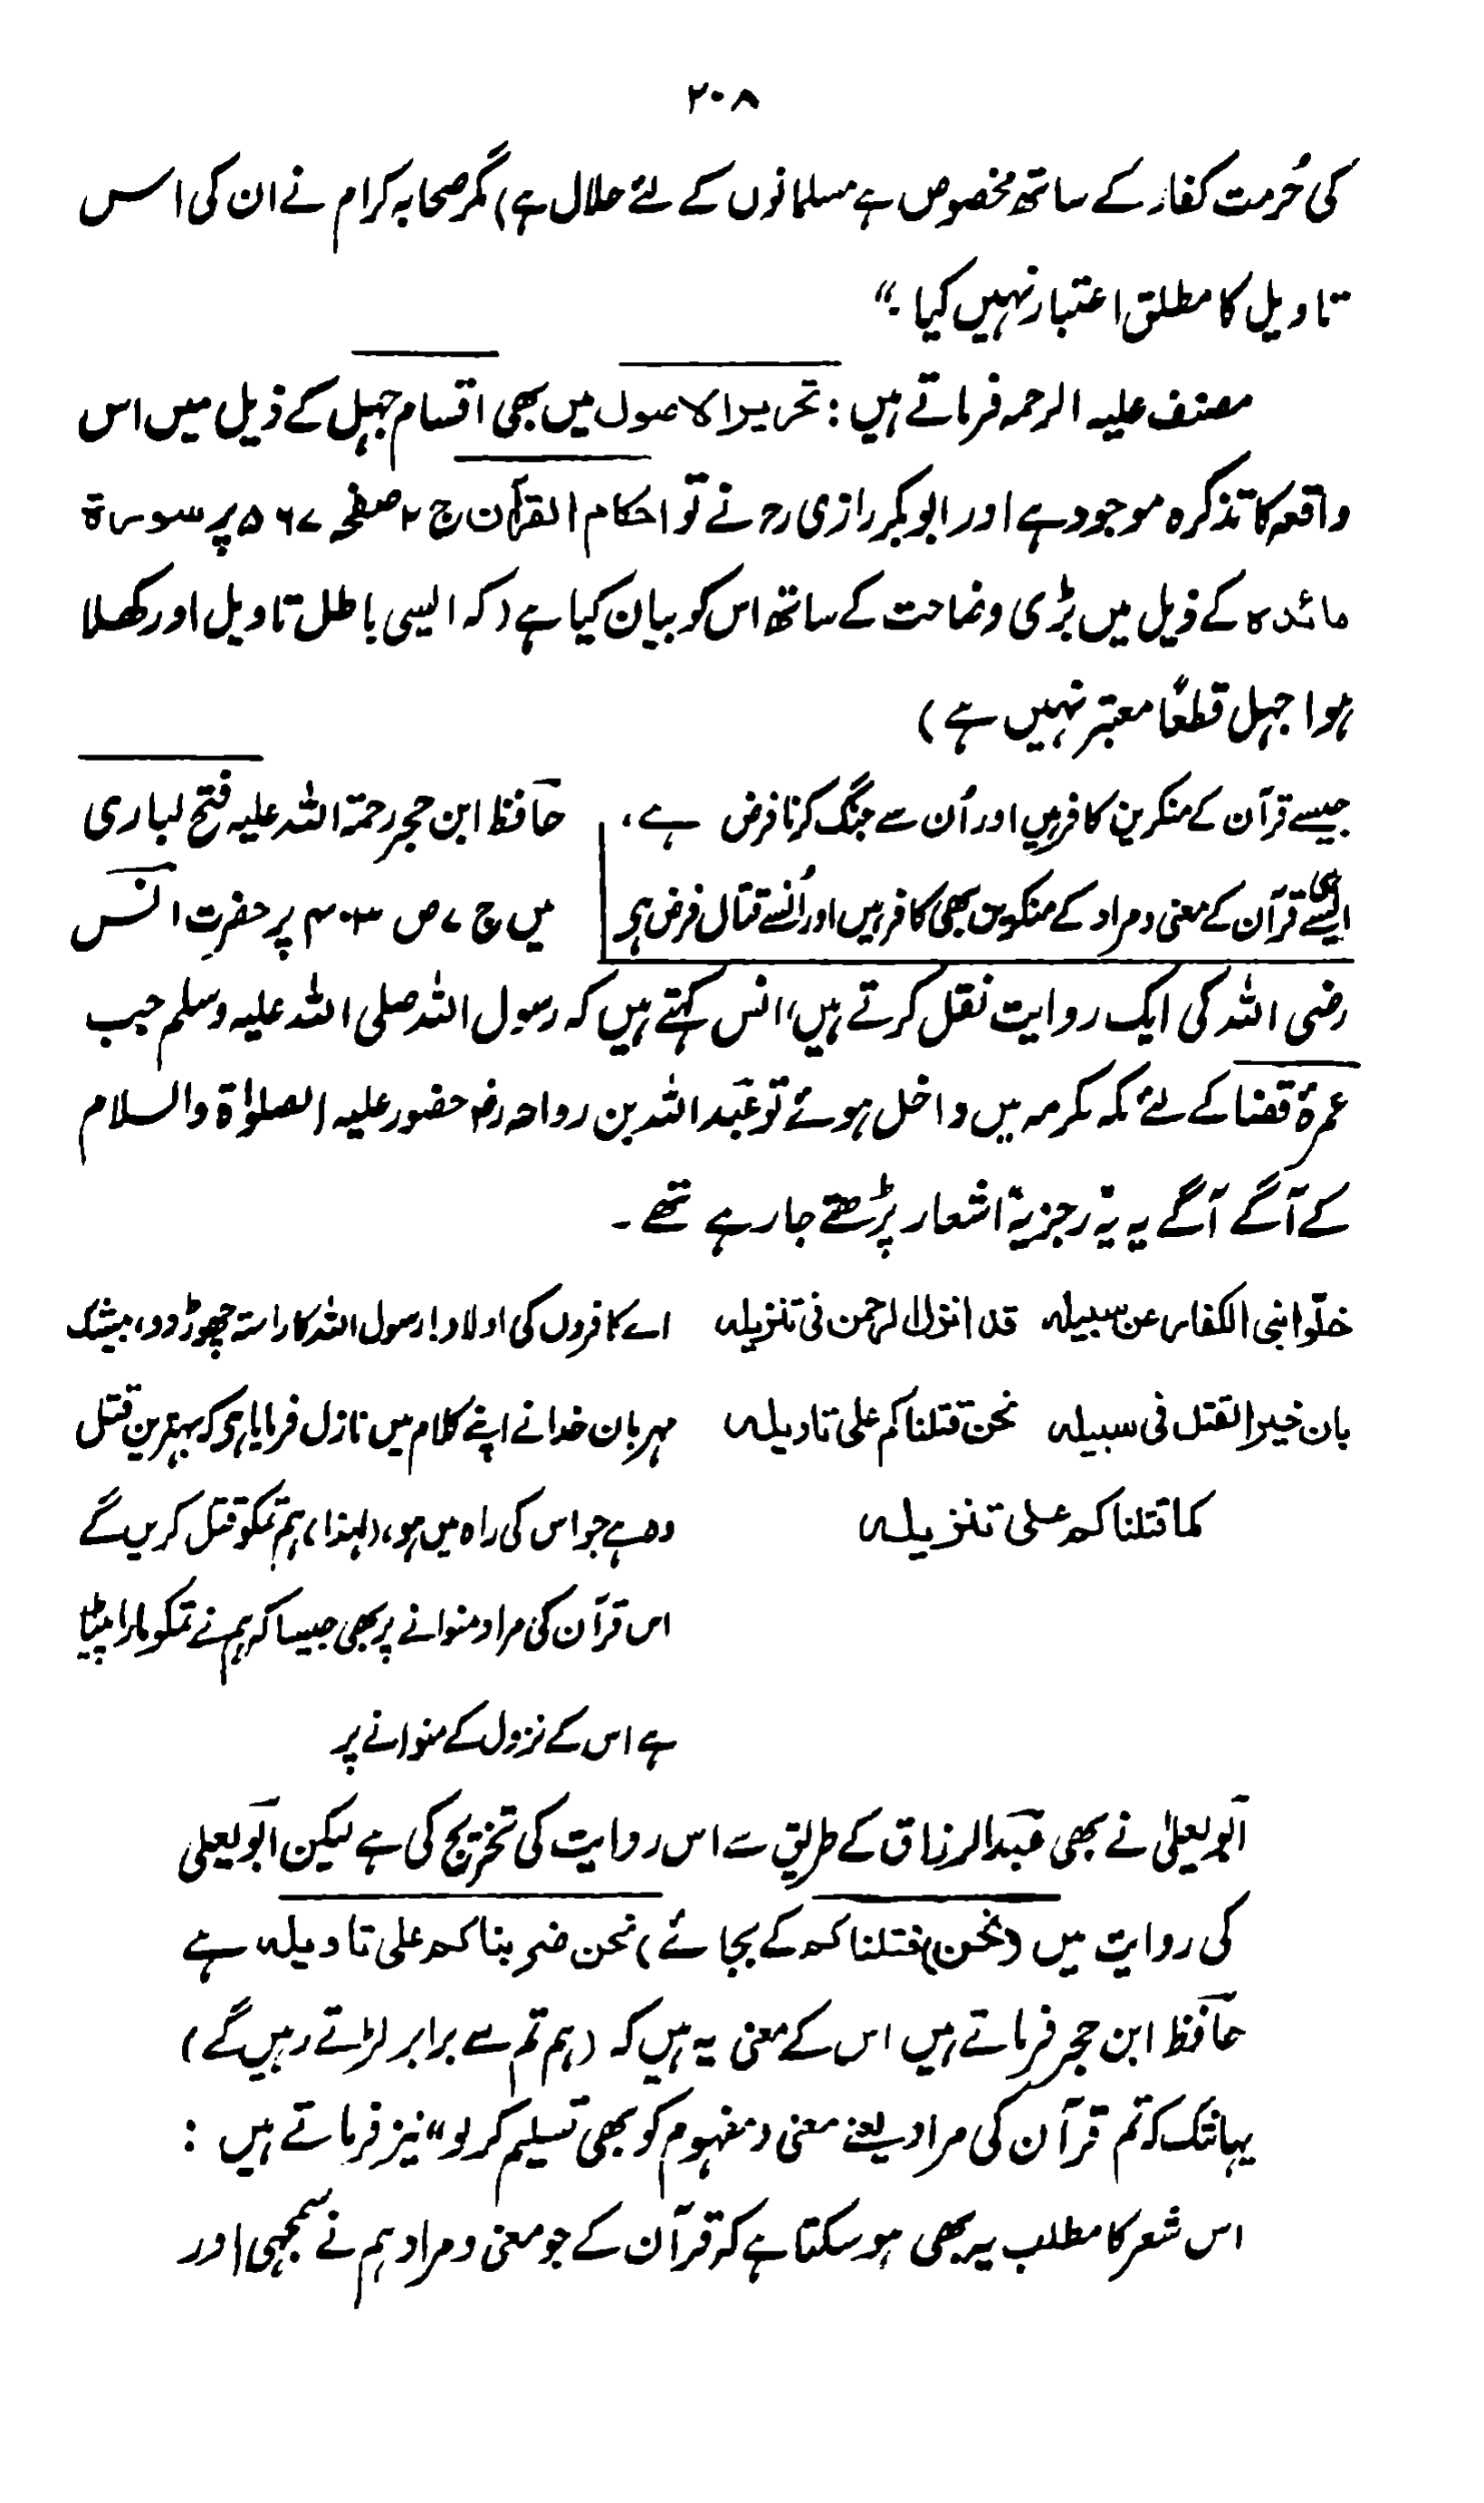 ۲۰۸
کی حُرمت کفار کے ساتھ مخصوص ہے مسلمانوں کے لئے حلال ہے) مگر صحابہ کرام نے ان کی اس
تاویل کا مطلق اعتبار نہیں کیا۔"
مصنف علیہ الرحمہ فرماتے ہیں: تحریر الاصول میں بھی اقسام جہل کے ذیل میں اس
واقعہ کا تذکرہ موجود ہے اور ابوبکر رازی رح نے تو احکام القرآن ج ۲ صفحہ ۵۶۷ پر سورۃ
مائدہ کے ذیل میں بڑی وضاحت کے ساتھ اس کو بیان کیا ہے (کہ ایسی باطل تاویل اور کھلا
ہوا جہل قطعًا معتبر نہیں ہے)
جیسے قرآن کے منکرین کافر ہیں اور اُن سے جنگ کرنا فرض ہے،
ایسے ہی قرآن کے معنی و مراد کے منکر بھی کافر ہیں اور اُنسے قتال فرض ہی
حافظ ابن حجر رحمۃ اللہ علیہ فتح لباری
میں ج ۷ ص ۴۰۳ پر حضرتِ انس
رضی اللہ کی ایک روایت نقل کرتے ہیں، انس کہتے ہیں کہ رسول اللہ صلی اللہ علیہ وسلم جب
عمرۃ قضا کے لئے مکہ مکرمہ میں داخل ہوئے تو عبد اللہ بن رواحہ رض حضور علیہ الصلوٰۃ والسلام
کے آگے آگے یہ یہ رجزیہ اشعار پڑھتے جا رہے تھے۔
خلّوا بنی الکفار عن سبیلہ قد انزل الرحمن فی تنزیلہ
بان خیر القتل فی سبیلہ نحن قتلناکم علی تاویلہ
کما قتلناکم علی تنزیلہ
اے کافروں کی اولاد! رسول اللہ کا راستہ چھوڑ دو، بیشک
مہربان خدا نے اپنے کلام میں نازل فرمایا ہی کہ بہترین قتل
وہ ہے جو اس کی راہ میں ہو، (لہذا) ہم تمکو قتل کریں گے
اس قرآن کی مراد منوانے پر بھی جیسا کہ ہم نے تمکو مارا پیٹا
ہے اس کے نزول کے منوانے پر
ابو یعلیٰ نے بھی عبدالرزاق کے طریق سے اس روایت کی تخریج کی ہے لیکن ابو یعلی
کی روایت میں (نحن) قتلناکم کے بجائے) نحن ضربناکم علی تاویلہ ہے
حافظ ابن حجر فرماتے ہیں اس کے معنی یہ ہیں کہ (ہم تم سے برابر لڑتے رہیں گے)
یہانتک کہ تم قرآن کی مراد یعنے معنی و مفہوم کو بھی تسلیم کر لو" نیز فرماتے ہیں:
اس شعر کا مطلب یہ بھی ہو سکتا ہے کہ قرآن کے جو معنی و مراد ہم نے سمجھی اور